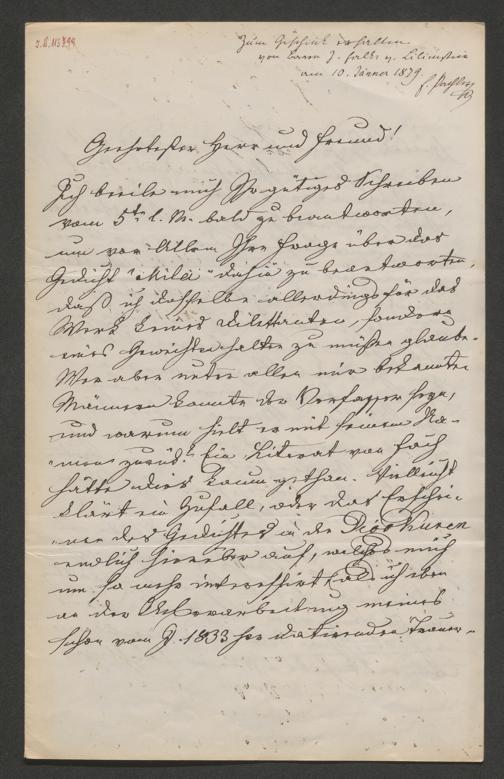 I.N. 115799
Zum Geschenk erhalten
von Baron J. Falke v. Lilienstein
am 10. Jänner 1879.
F. Pachler
Geehrtester Herr und Freund!
Ich beeile mich Ihr gütiges Schreiben
vom 5ten l. M. bald zu beantworten,
um vor Allem Ihre Frage über das
Gedicht "Mila" dahin zu beantworten,
daß ich dasselbe allerdings für das
Werk keines Dilettanten, sondern
eines Geweihten halten zu müßen glaube.
Wer aber unter allen mir bekannten
Männern konnte der Verfasser seyn,
und warum hielt er mit seinem Na-
men zurück? Ein Literat von Fach
hätte dies kaum gethan. Vielleicht
klärt ein Zufall, oder das Erschei-
nen des Gedichtes in den Dioskuren
endlich hierüber auf, welches mich
um so mehr interessirt, als ich eben
an der Überarbeitung meines
schon vom J. 1833 her datirenden Trauer-